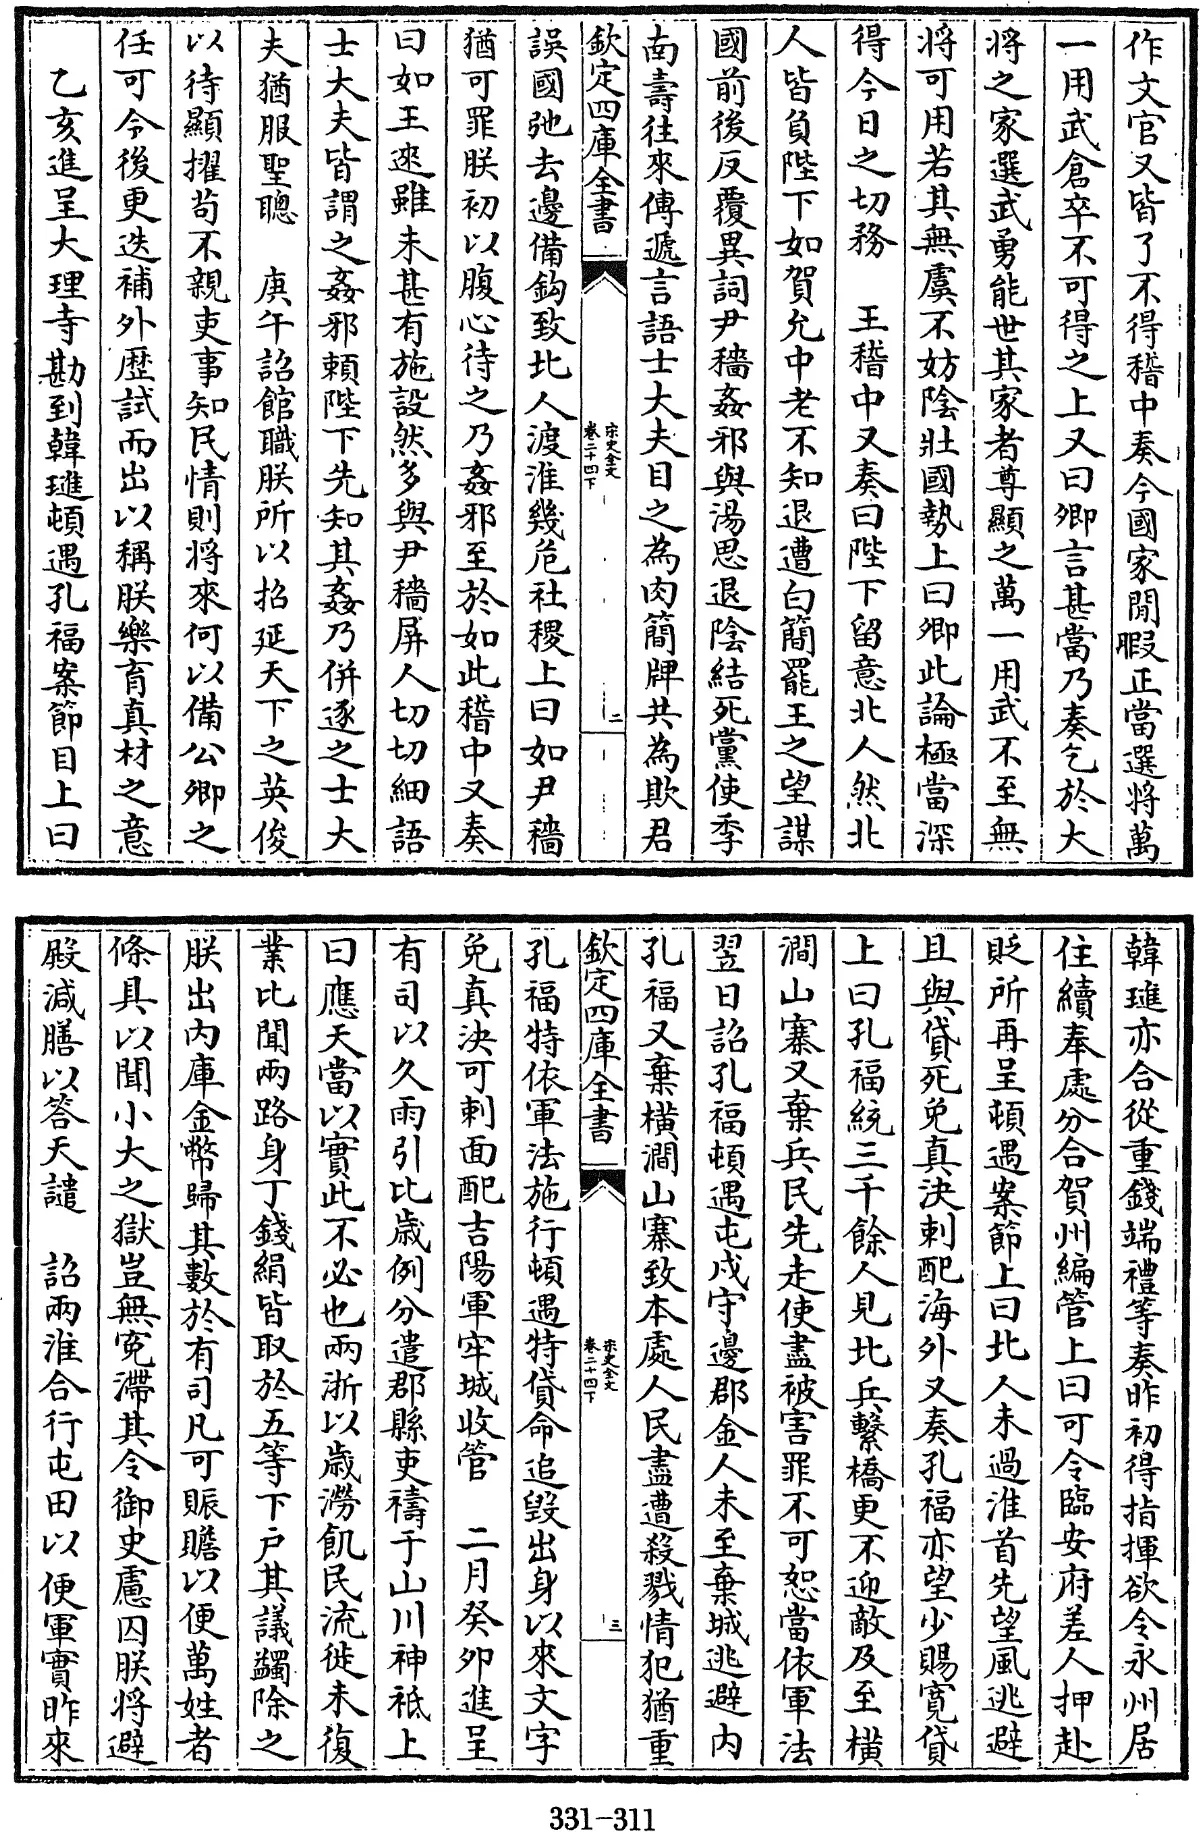 作文官又皆了不得稽中奏今國家閒暇正當選將萬
一用武倉卒不可得之上又曰卿言甚當乃奏乞於大
將之家選武勇能世其家者尊顯之萬一用武不至無
將可用若其無虞不妨陰壯國勢上曰卿此論極當深
得今日之切務　王稽中又奏曰陛下留意北人然北
人皆負陛下如賀允中老不知退遭白簡罷王之望謀
國前後反覆異詞尹穡姦邪與湯思退陰結死黨使季
南壽往來傳遞言語士大夫目之為肉簡牌共為欺君
欽定四庫全書
宋史全文
卷二十四下
二
誤國弛去邊備鈎致北人渡淮幾危社稷上曰如尹穡
猶可罪朕初以腹心待之乃姦邪至於如此稽中又奏
曰如王逨雖未甚有施設然多與尹穡屏人切切細語
士大夫皆謂之姦邪賴陛下先知其姦乃併逐之士大
夫猶服聖聰　庚午詔館職朕所以招延天下之英俊
以待顯擢苟不親吏事知民情則將來何以備公卿之
任可令後更迭補外歷試而出以稱朕樂育真材之意
乙亥進呈大理寺勘到韓璡頓遇孔福案節目上曰
韓璡亦合從重錢端禮等奏昨初得指揮欲令永州居
住續奉處分合賀州編管上曰可令臨安府差人押赴
貶所再呈頓遇案節上曰北人未過淮首先望風逃避
且與貸死免真決刺配海外又奏孔福亦望少賜寬貸
上曰孔福統三千餘人見北兵繫橋更不迎敵及至橫
澗山寨又棄兵民先走使盡被害罪不可恕當依軍法
翌日詔孔福頓遇屯戍守邊郡金人未至棄城逃避内
孔福又棄橫澗山寨致本處人民盡遭殺戮情犯猶重
欽定四庫全書
宋史全文
卷二十四下
三
孔福特依軍法施行頓遇特貸命追毀出身以來文字
免真決可刺面配吉陽軍牢城收管　二月癸卯進呈
有司以久雨引比歲例分遣郡縣吏禱于山川神祗上
曰應天當以實此不必也兩浙以歲澇飢民流徙未復
業比聞兩路身丁錢絹皆取於五等下户其議蠲除之
朕出内庫金幣歸其數於有司凡可賑贍以便萬姓者
條具以聞小大之獄豈無寃滯其令御史慮囚朕將避
殿減膳以答天譴　詔兩淮合行屯田以便軍實昨來
331-311